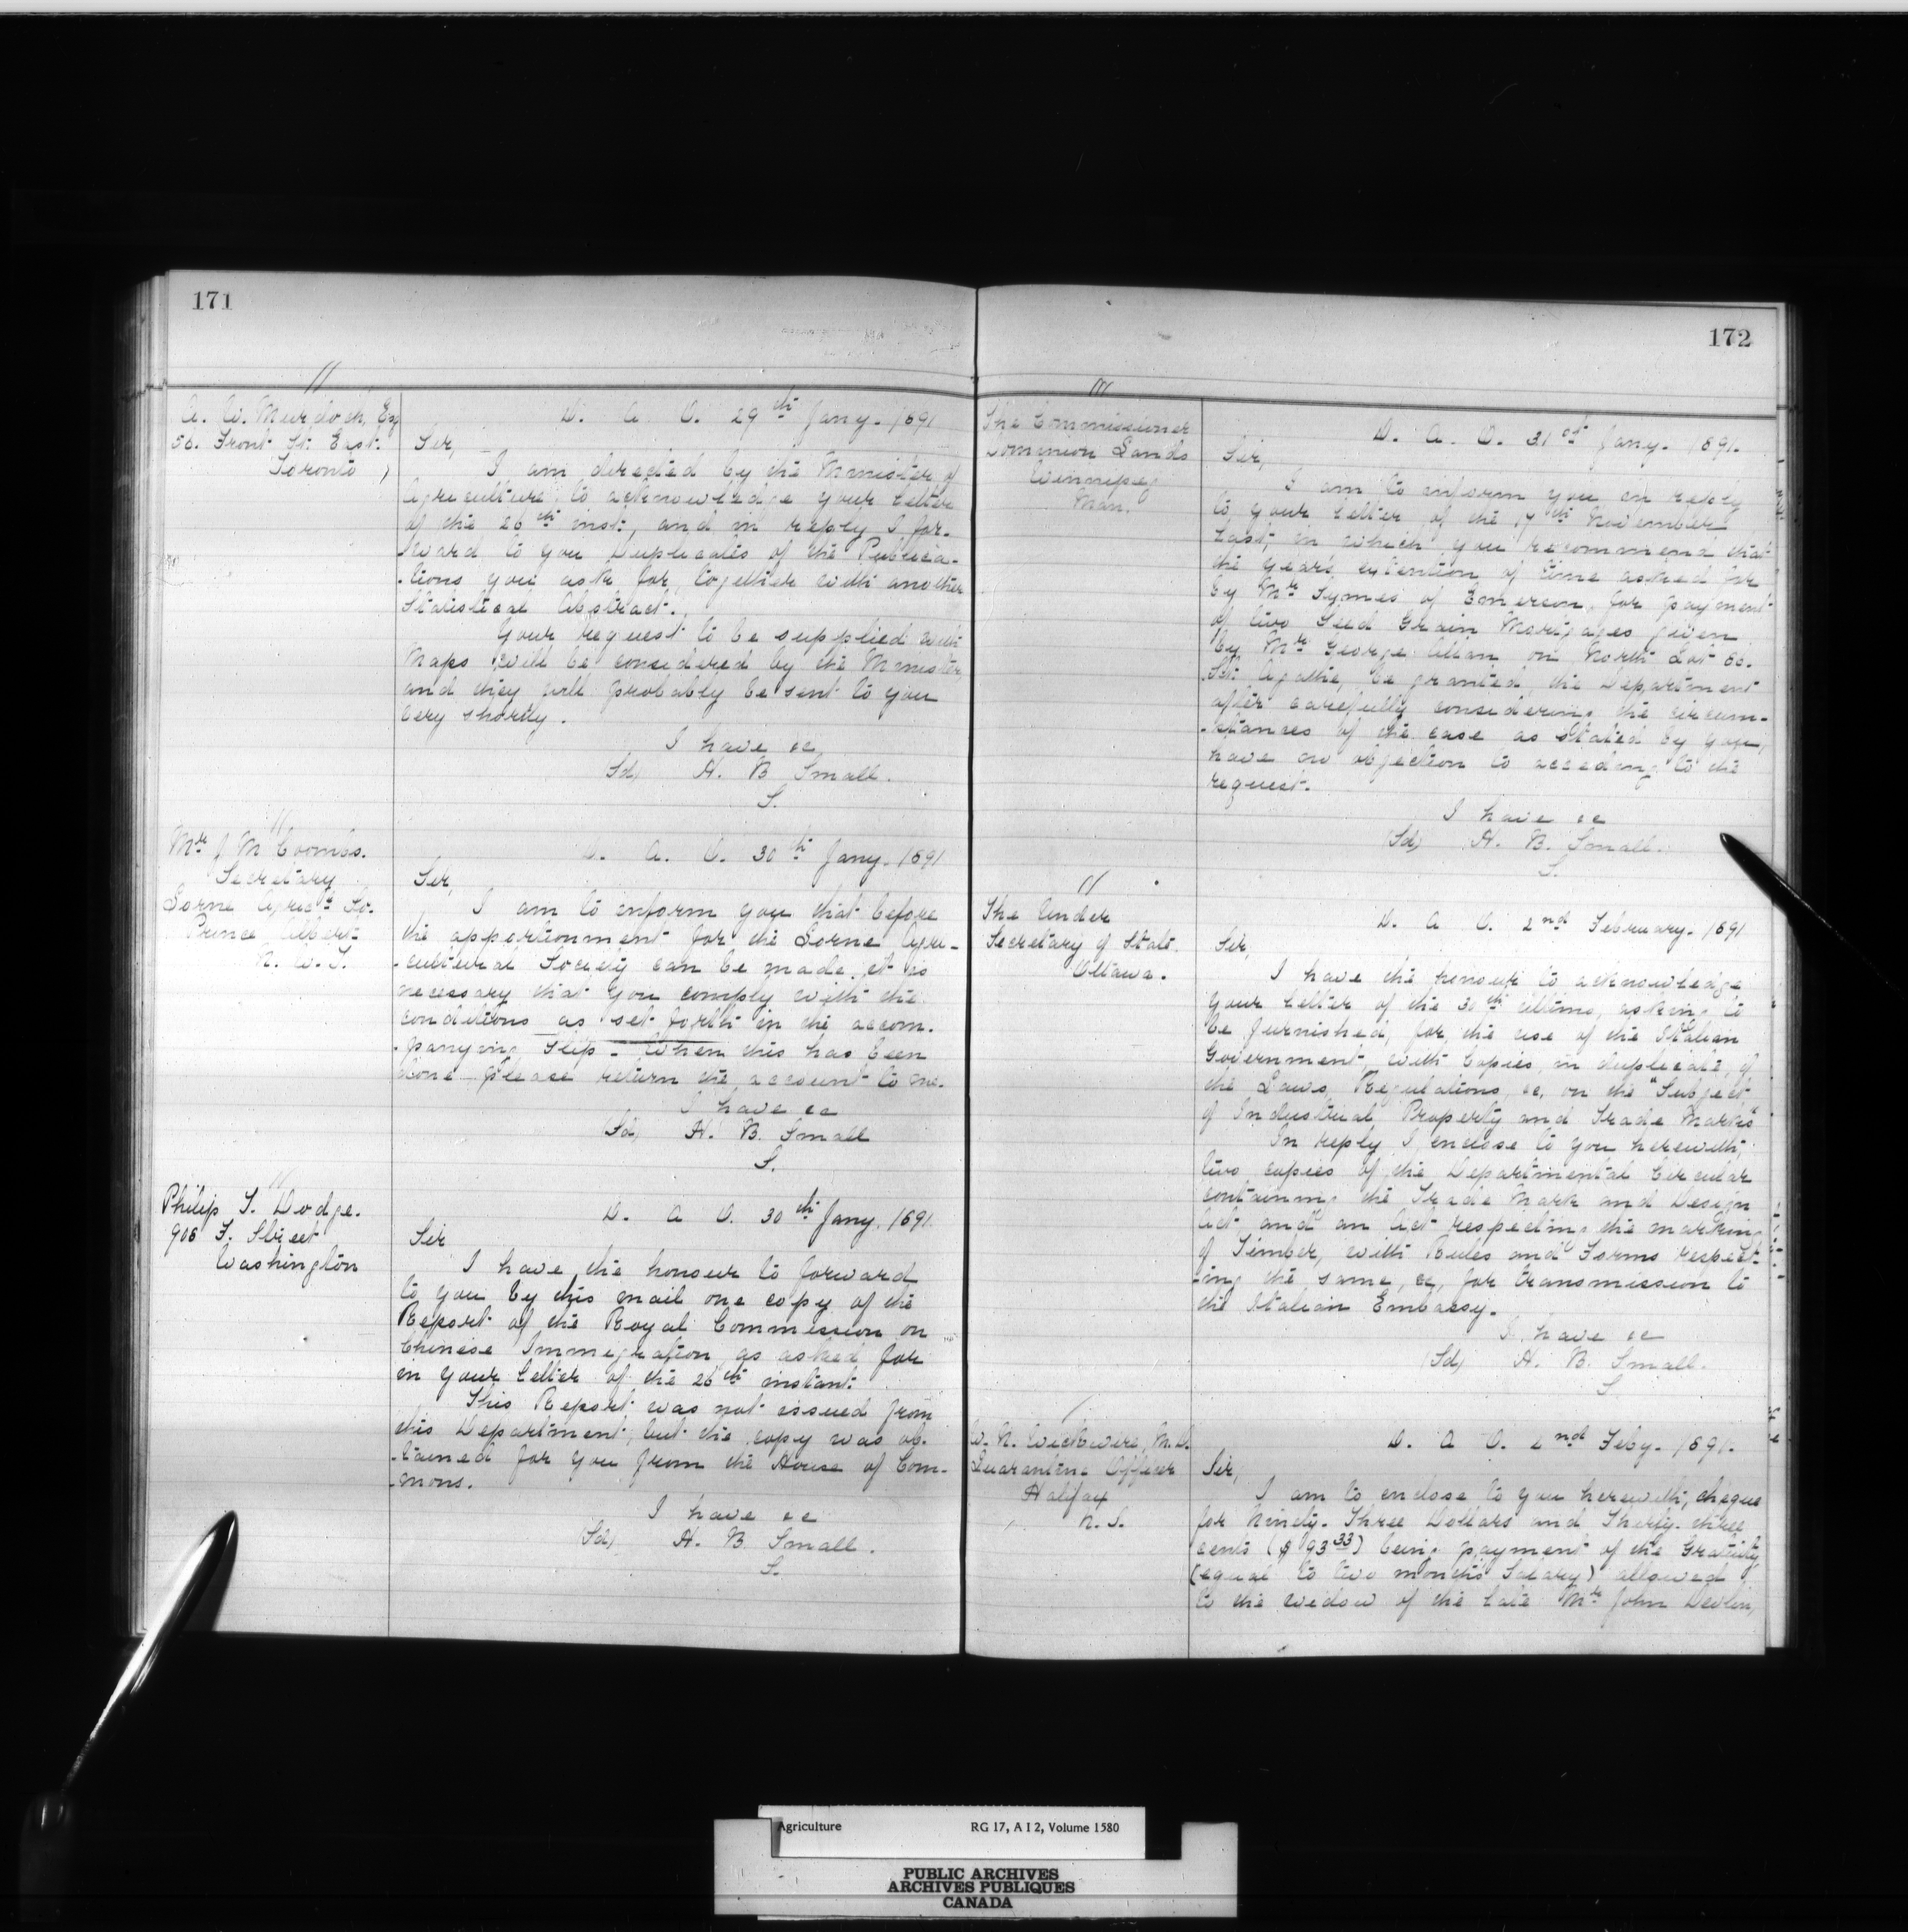 171
A. W. Murdoch, Esq
56. Front St. East.
Toronto
D. A. O. 29th Jany. 1891
Sir,
I am directed by the Minister of
Agriculture to acknowledge your letter
of the 26th inst, and in reply I for-
-ward to you Duplicates of the Publica-
-tions you ask for, together with another
Statistical Abstract.
Your request to be supplied with
Maps will be considered by the Minister,
and they will probably be sent to you
very shortly.
I have &c
Sd, H. B. Small.
S.
Mr J. M. Coombs.
Secretary
Lorne Agricl So.
Prince Albert
N. W. T.
D. A. O. 30th Jany. 1891
Sir,
I am to inform you that before
the apportionment for the Lorne Agri-
-cultural Society can be made, it is
necessary that you comply with the
conditions as set forth in the accom-
-panying slip - When this has been
done please return the account to me.
I have &c
Sd, H. B. Small
S.
Philip T. Dodge.
908 F. Street
Washington
D. A. O. 30th Jany. 1891.
Sir
I have the honour to forward
to you by this mail one copy of the
Report of the Royal Commission on
Chinese Immigration as asked for
in your letter of the 26th instant.
This Report was not issued from
this Department, but the copy was ob-
-tained for you from the House of Com-
-mons.
I have &c
(Sd, H. B. Small.
S.
172
The Commissioner
Dominion Lands
Winnipeg
Man.
D. A. O. 31st Jany. 1891.
Sir,
I am to inform you in reply
to your letter of the 17th November
last, in which you recommend that
the years extention of time asked for
by Mr Symes of Emerson, for payment
of two Seed Grain Mortgages given
by Mr George Allan on North Lot 60.
Ste Agathe, be granted, the Department
after carefully considering the circum-
-stances of the case as stated by you,
have no objection to acceding to the
request.
I have &c
(Sd, H. B. Small.
S.
The Under
Secretary of State.
Ottawa.
D. A. O. 2nd February. 1891
Sir,
I have the honour to acknowledge
your letter of the 30th ultimo, asking to
be furnished, for the use of the Italian
Government, with copies, in duplicate, of
the Laws, Regulations, &c, on the "Subject
of Industrial Property and Trade Marks"
In reply I enclose to you herewith,
two copies of the Departmental Circular
containing the Trade Mark and Design
Act and an Act respecting the marking
of Timber, with Rules and Forms respect-
-ing the same, &c, for transmission to
the Italian Embassy.
I have &c
(Sd, H. B. Small.
S
W. N. Wickwire, M.D.
Quarantine Officer
Halifax
N. S.
D. A. O. 2nd Feby. 1891.
Sir,
I am to enclose to you herewith, cheque
for Ninety-Three Dollars and Thirty-three
cents ($ 93 33) being payment of the Gratuity,
(equal to two months Salary) allowed
to the widow of the late Mr John Devlin,
Agriculture RG 17, A I 2, Volume 1580
PUBLIC ARCHIVES
ARCHIVES PUBLIQUES
CANADA